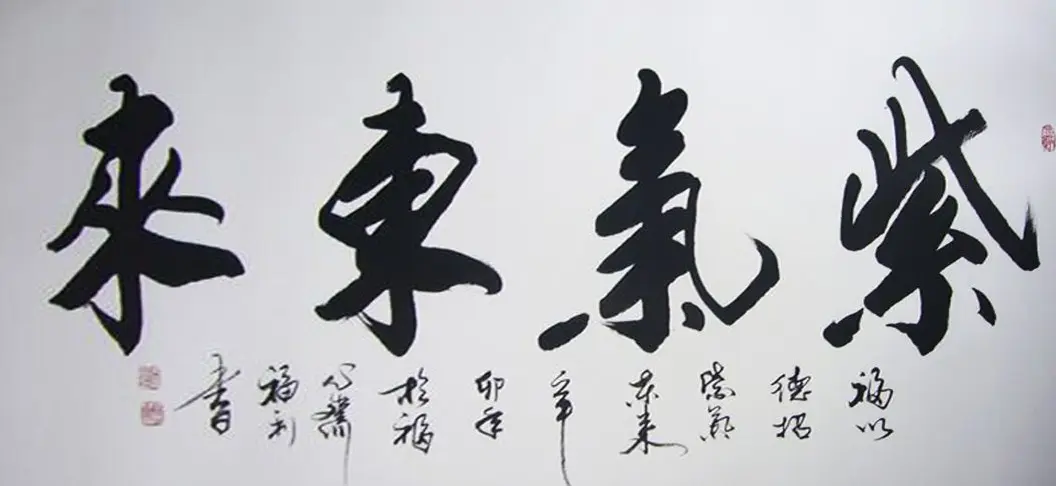 紫氣東來
福以
德招
紫氣
東来
辛
卯年
於福
心齋
福利
書